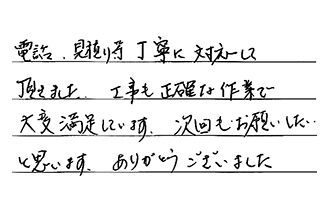 電話、見積り等 丁寧に対応して
頂きました。工事も正確な作業で
大変満足しています。次回もお願いしたい
と思います。ありがとうございました